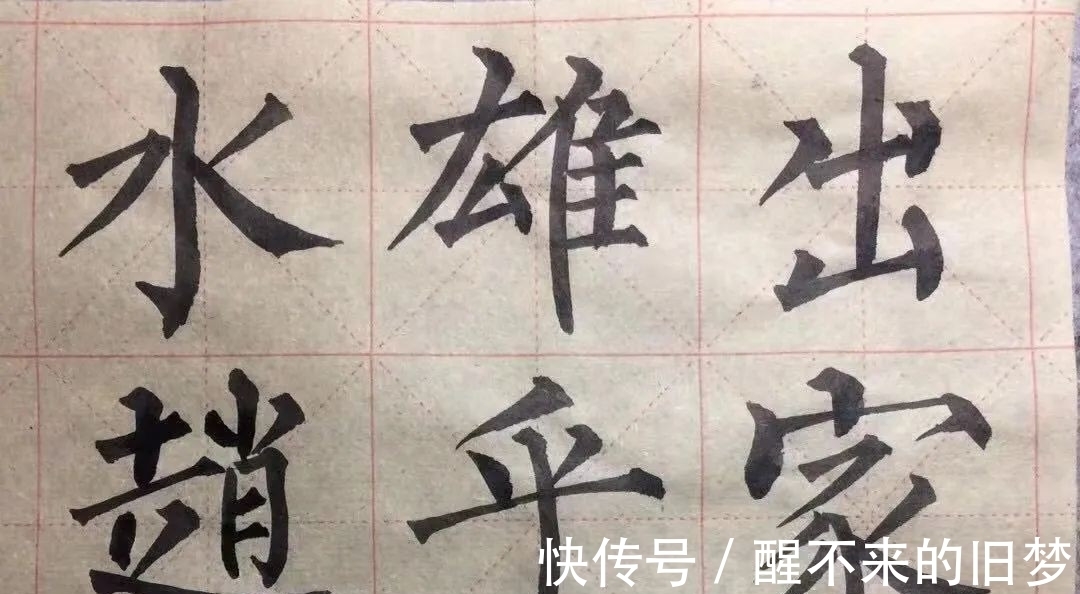 出家
雄乎
水趙
快传号 / 醒不来的旧梦